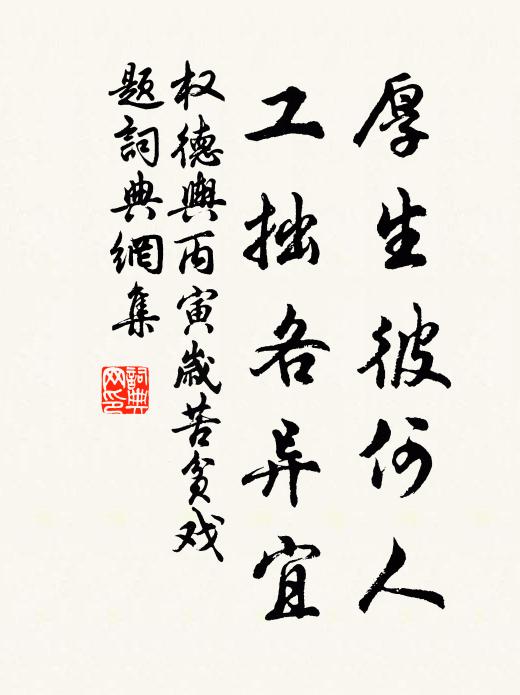 厚生彼何人
工拙各异宜
权德舆丙寅岁苦贫戏
题词典網集
詞典网印